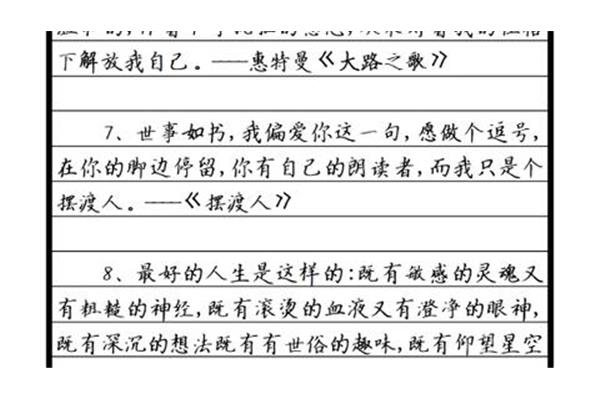 下解放我自己。——惠特曼《大路之歌》
7、世事如书，我偏爱你这一句，愿做个逗号，
在你的脚边停留，你有自己的朗读者，而我只是个
摆渡人。——《摆渡人》
8、最好的人生是这样的：既有敏感的灵魂又
有粗糙的神经，既有滚烫的血液又有澄净的眼神，
既有深沉的想法既有有世俗的趣味，既有仰望星空